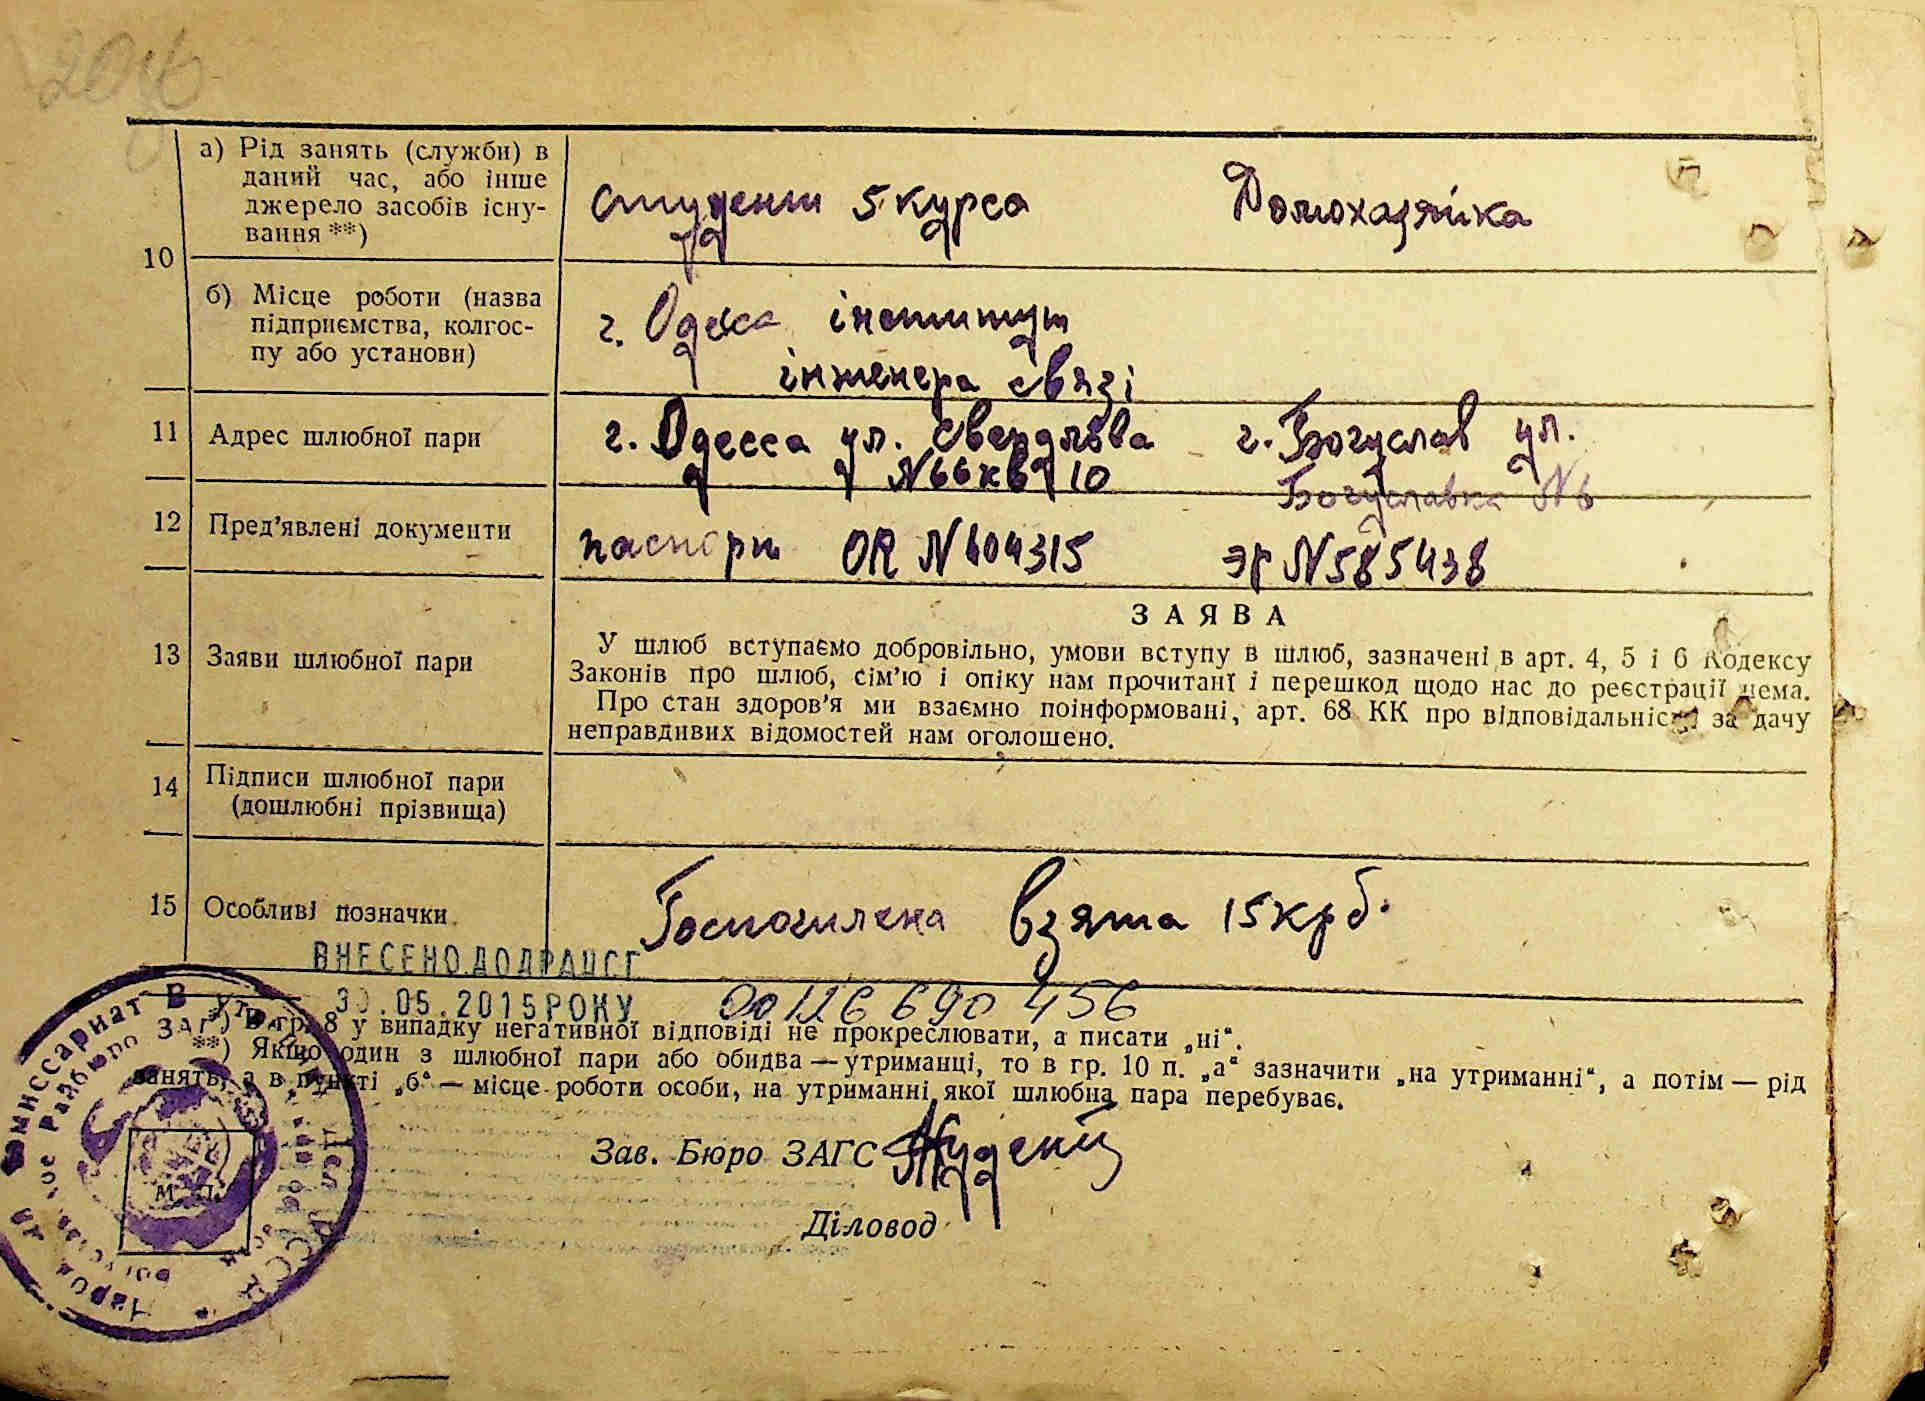 а) Рід занять (служби) в
даний час, або інше
джерело засобів існу-
вання **)
студент 5 курса
Домохазяйка
10
б) Місце роботи (назва
підприємства, колгос-
пу або установи)
г. Одеса інститут
інженера связі
11 Адрес шлюбної пари
г. Одесса ул. Свердлова
№66 кв 10
г. Богуслав ул.
Богуславка №6
12 Пред'явлені документи
паспорт OR N 604315
эр N 585438
13 Заяви шлюбної пари
ЗАЯВА
У шлюб вступаємо добровільно, умови вступу в шлюб, зазначені в арт. 4, 5 і 6 Кодексу
Законів про шлюб, сім'ю і опіку нам прочитані і перешкод щодо нас до реєстрації нема.
Про стан здоров'я ми взаємно поінформовані, арт. 68 КК про відповідальність за дачу
неправдивих відомостей нам оголошено.
14 Підписи шлюбної пари
(дошлюбні прізвища)
15 Особливі позначки
взята 15 крб.
ВНЕСЕНО ДО ДРАЦСГ
30.05.2015 РОКУ 00126 690 456
*) В гр. 8 у випадку негативної відповіді не прокреслювати, а писати „ні“.
**) Якщо один з шлюбної пари або обидва — утриманці, то в гр. 10 п. „а“ зазначити „на утриманні“, а потім — рід
занять, а в пункті „б“ — місце роботи особи, на утриманні якої шлюбна пара перебуває.
Зав. Бюро ЗАГС
М. П.
Діловод